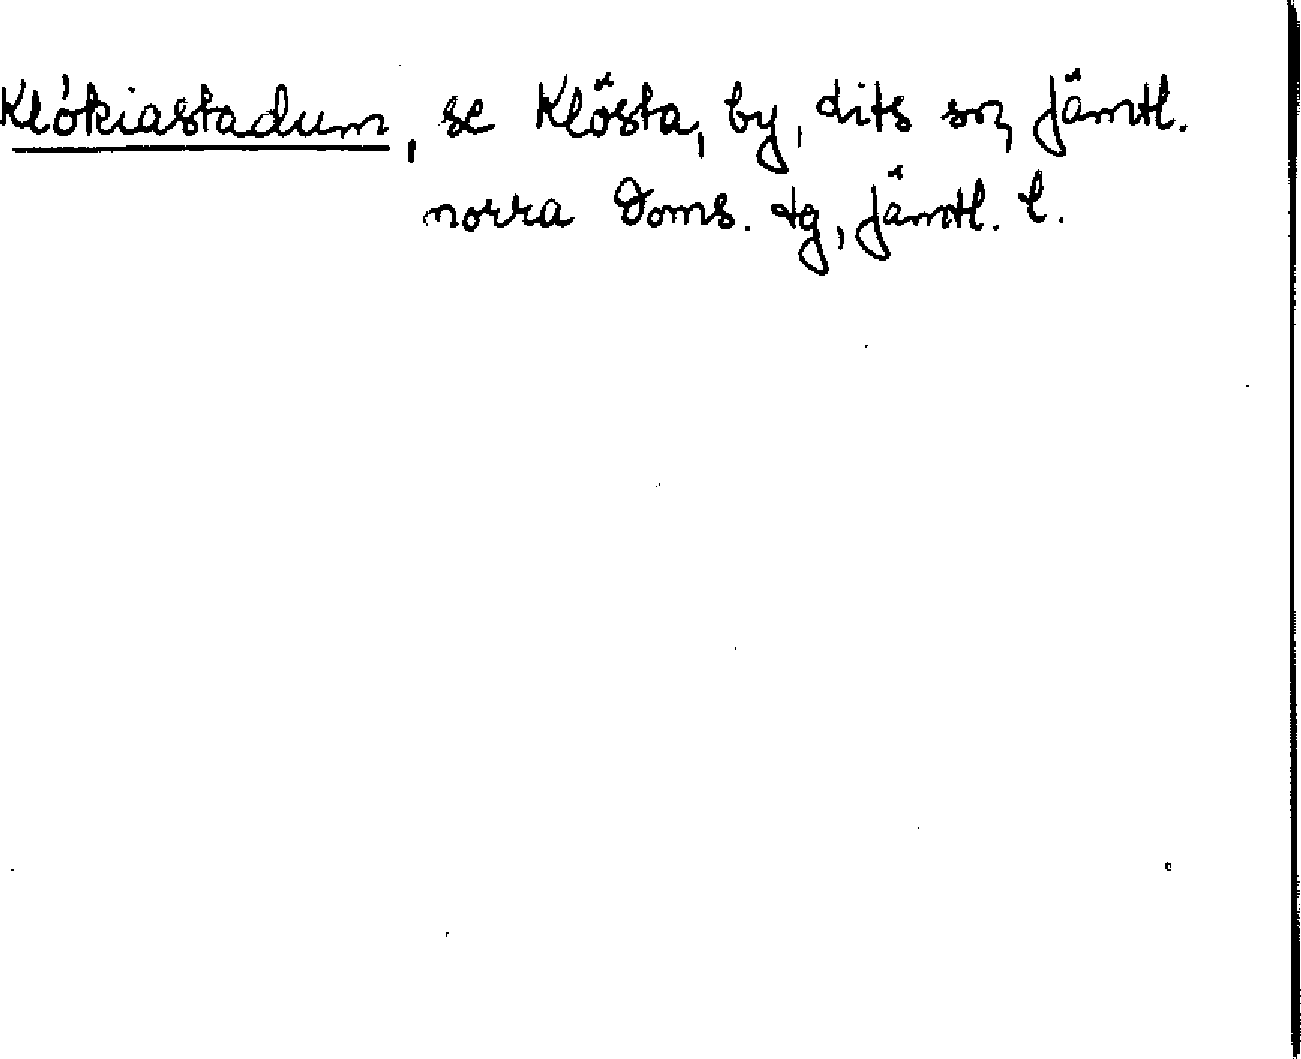 Klókiastadum, se Klösta, by, Lits sn, Jämtl.
norra Doms. tg, Jämtl. l.